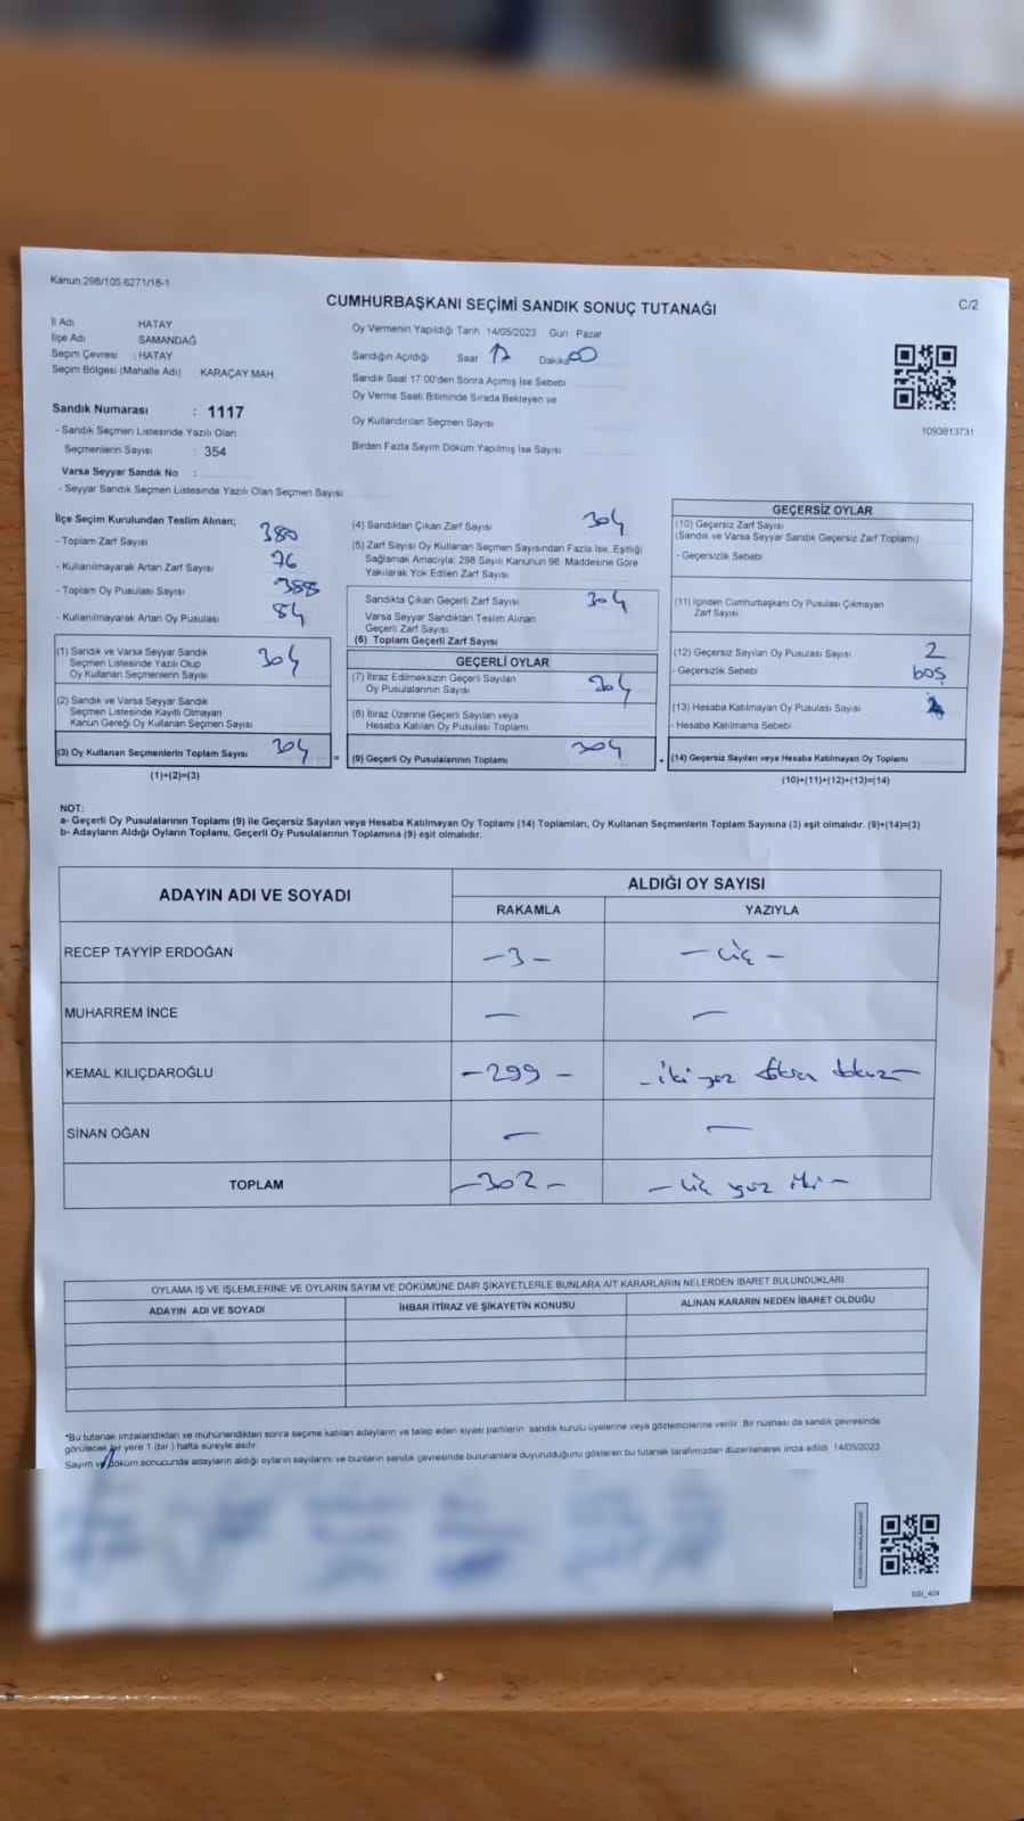 Kanun:298/105.6271/18-1
CUMHURBAŞKANI SEÇİMİ SANDIK SONUÇ TUTANAĞI
C/2
İl Adı HATAY
İlçe Adı SAMANDAĞ
Seçim Çevresi : HATAY
Seçim Bölgesi (Mahalle Adı) KARAÇAY MAH.
Sandık Numarası : 1117
- Sandık Seçmen Listesinde Yazılı Olan
Seçmenlerin Sayısı : 354
Varsa Seyyar Sandık No :
- Seyyar Sandık Seçmen Listesinde Yazılı Olan Seçmen Sayısı
Oy Vermenin Yapıldığı Tarih 14/05/2023 Gün: Pazar
Sandığın Açıldığı Saat 17 Dakika 00
Sandık Saat 17:00'den Sonra Açımış İse Sebebi
Oy Verme Saati Bitiminde Sırada Bekleyen ve
Oy Kullandırılan Seçmen Sayısı
Birden Fazla Sayım Döküm Yapılmış İse Sayısı
1093813731
İlçe Seçim Kurulundan Teslim Alınan;
- Toplam Zarf Sayısı 380
- Kullanılmayarak Artan Zarf Sayısı 76
- Toplam Oy Pusulası Sayısı 388
- Kullanılmayarak Artan Oy Pusulası 84
(1) Sandık ve Varsa Seyyar Sandık
Seçmen Listesinde Yazılı Olup
Oy Kullanan Seçmenlerin Sayısı 304
(2) Sandık ve Varsa Seyyar Sandık
Seçmen Listesinde Kayıtlı Olmayan
Kanun Gereği Oy Kullanan Seçmen Sayısı
(3) Oy Kullanan Seçmenlerin Toplam Sayısı 304
(1)+(2)=(3)
(4) Sandıktan Çıkan Zarf Sayısı 304
(5) Zarf Sayısı Oy Kullanan Seçmen Sayısından Fazla İse, Eşitliği
Sağlamak Amacıyla; 298 Sayılı Kanunun 98. Maddesine Göre
Yakılarak Yok Edilen Zarf Sayısı
Sandıkta Çıkan Geçerli Zarf Sayısı 304
Varsa Seyyar Sandıktan Teslim Alınan
Geçerli Zarf Sayısı
(6) Toplam Geçerli Zarf Sayısı
GEÇERLİ OYLAR
(7) İtiraz Edilmeksizin Geçerli Sayılan
Oy Pusulalarının Sayısı 304
(8) İtiraz Üzerine Geçerli Sayılan veya
Hesaba Katılan Oy Pusulası Toplamı
= (9) Geçerli Oy Pusulalarının Toplamı 304
GEÇERSİZ OYLAR
(10) Geçersiz Zarf Sayısı
(Sandık ve Varsa Seyyar Sandık Geçersiz Zarf Toplamı)
- Geçersizlik Sebebi
(11) İçinden Cumhurbaşkanı Oy Pusulası Çıkmayan
Zarf Sayısı
(12) Geçersiz Sayılan Oy Pusulası Sayısı 2
- Geçersizlik Sebebi boş
(13) Hesaba Katılmayan Oy Pusulası Sayısı
- Hesaba Katılmama Sebebi
+ (14) Geçersiz Sayılan veya Hesaba Katılmayan Oy Toplamı
(10)+(11)+(12)+(13)=(14)
NOT:
a- Geçerli Oy Pusulalarının Toplamı (9) ile Geçersiz Sayılan veya Hesaba Katılmayan Oy Toplamı (14) Toplamları, Oy Kullanan Seçmenlerin Toplam Sayısına (3) eşit olmalıdır. (9)+(14)=(3)
b- Adayların Aldığı Oyların Toplamı, Geçerli Oy Pusulalarının Toplamına (9) eşit olmalıdır.
ADAYIN ADI VE SOYADI
ALDIĞI OY SAYISI
RAKAMLA YAZIYLA
RECEP TAYYİP ERDOĞAN -3- - üç -
MUHARREM İNCE - -
KEMAL KILIÇDAROĞLU -299- - iki yüz doksan dokuz -
SİNAN OĞAN - -
TOPLAM -302- - üç yüz iki -
OYLAMA İŞ VE İŞLEMLERİNE VE OYLARIN SAYIM VE DÖKÜMÜNE DAİR ŞİKAYETLERLE BUNLARA AİT KARARLARIN NELERDEN İBARET BULUNDUKLARI
ADAYIN ADI VE SOYADI İHBAR İTİRAZ VE ŞİKAYETİN KONUSU ALINAN KARARIN NEDEN İBARET OLDUĞU
*Bu tutanak imzalandıktan ve mühürlendikten sonra seçime katılan adayların ve talep eden siyasi partilerin sandık kurulu üyelerine veya gözlemcilerine verilir. Bir nüshası da sandık çevresinde
görülecek bir yere 1 (bir) hafta süreyle asılır.
Sayım ve döküm sonucunda adayların aldığı oyların sayılarını ve bunların sandık çevresinde bulunanlara duyurulduğunu gösteren bu tutanak tarafımızdan düzenlenerek imza edildi. 14/05/2023